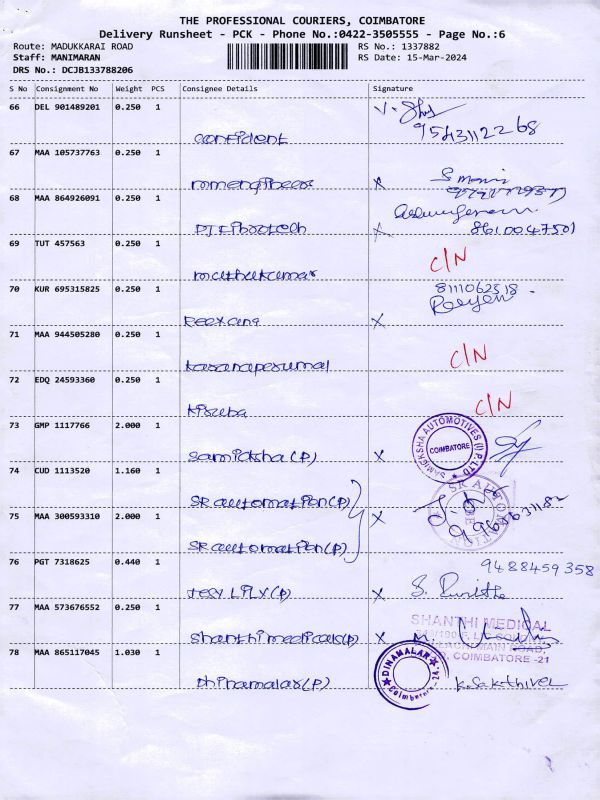 THE PROFESSIONAL COURIERS, COIMBATORE
Delivery Runsheet - PCK - Phone No.:0422-3505555 - Page No.:6
Route: MADUKKARAI ROAD
Staff: MANIMARAN
DRS No.: DCJB133788206
RS No.: 1337882
RS Date: 15-Mar-2024
S No Consignment No Weight PCS Consignee Details Signature
66 DEL 901489201 0.250 1
confident 9543112268
67 MAA 105737763 0.250 1
mmengineers x S mani
68 MAA 864926091 0.250 1
x 8610047501
69 TUT 457563 0.250 1
muthukumar C/N
70 KUR 695315825 0.250 1
8111062518
x
71 MAA 944505280 0.250 1
C/N
72 EDQ 24593360 0.250 1
C/N
73 GMP 1117766 2.000 1
samiksha (P) x SAMIKSHA AUTOMOTIVES (I) P. LTD COIMBATORE
74 CUD 1113520 1.160 1
SR automation (P)
75 MAA 300593310 2.000 1
x SR AUTOM
SR automation (P)
76 PGT 7318625 0.440 1
9488459358
Jesy LILY (P) x
77 MAA 573676552 0.250 1
SHANTHI MEDICAL
shanthi medicals (P) x M.
MAIN ROAD,
COIMBATORE -21
78 MAA 865117045 1.030 1
Dhinamalar (P) DINAMALAR Coimbatore-24. K. Sakthivel